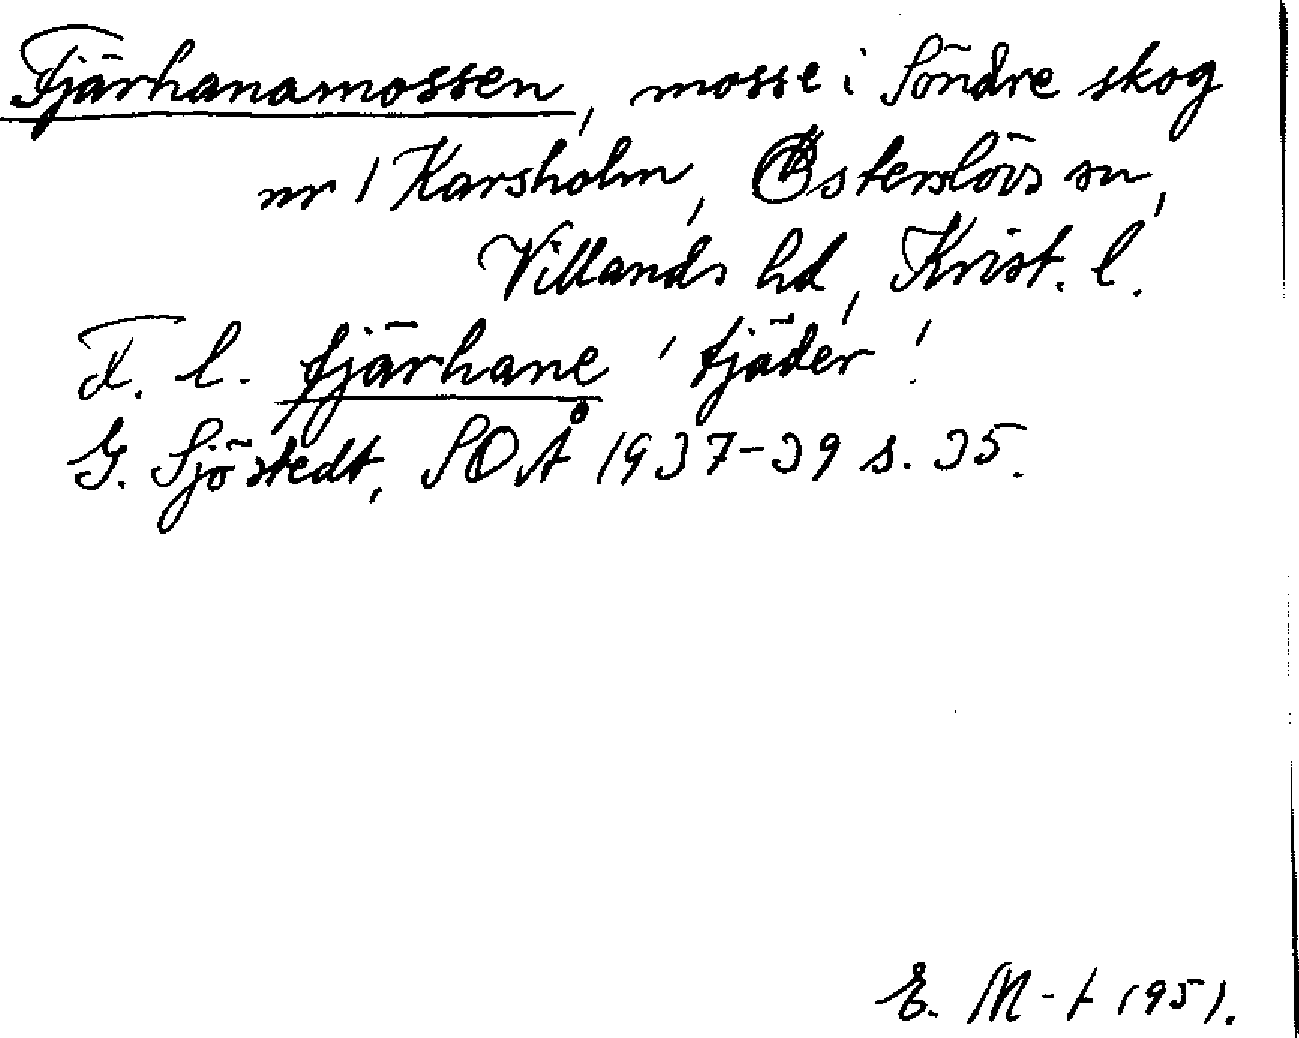 Tjärhanamossen, mosse i Söndre skog
nr 1 Karsholm, Österslövs sn,
Villands hd, Krist. l.
F. l. tjärhane 'tjäder'.
G. Sjöstedt, SOÅ 1937-39 s. 35.
E. M-t 1951.